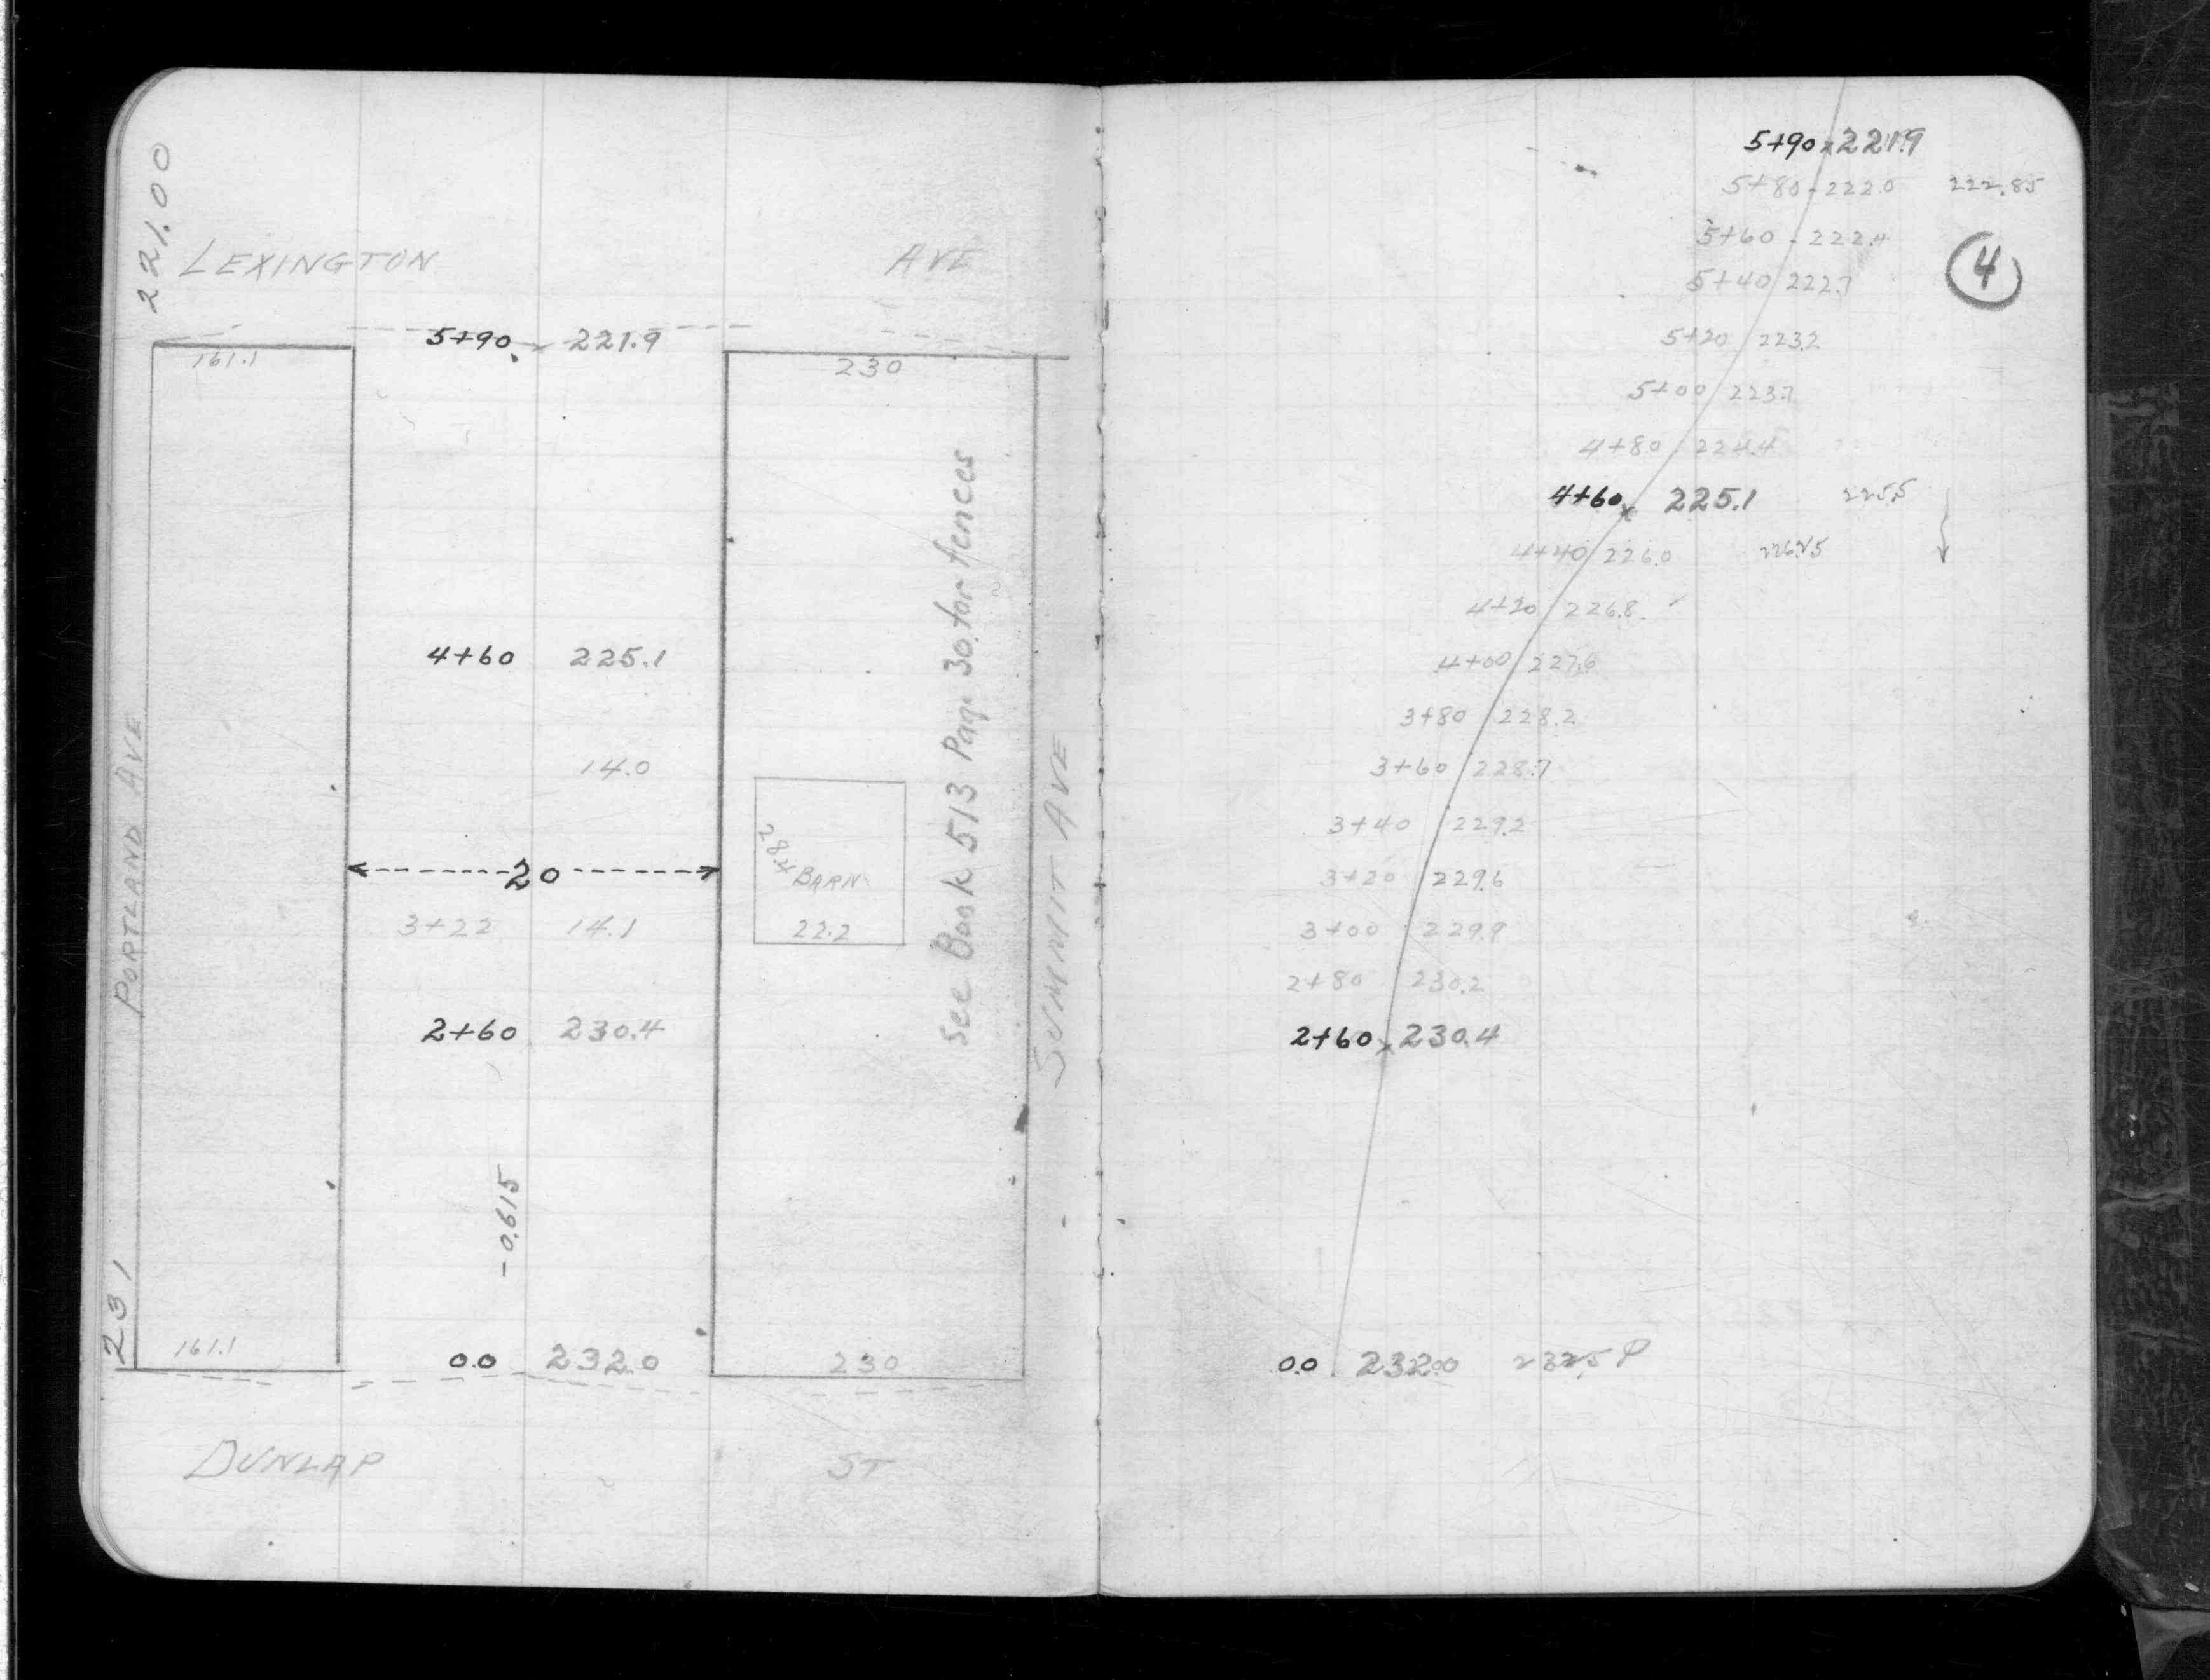 221.00
LEXINGTON AVE
5+90 x 221.9
161.1
230
4+60 225.1
14.0
See Book 513 Page 30 for fences
SUMMIT AVE
PORTLAND AVE
28.4
BARN
22.2
20
3+22 14.1
2+60 230.4
-0.615
231
161.1
0.0 232.0
230
DUNLAP ST
5+90 x 221.9
5+80 222.0 222.85
4
5+60 222.4
5+40 222.7
5+20 223.2
5+00 223.7
4+80 224.4
4+60 x 225.1 225.5
4+40 226.0 226.25
4+20 226.8
4+00 227.6
3+80 228.2
3+60 228.7
3+40 229.2
3+20 229.6
3+00 229.9
2+80 230.2
2+60 x 230.4
0.0 232.00